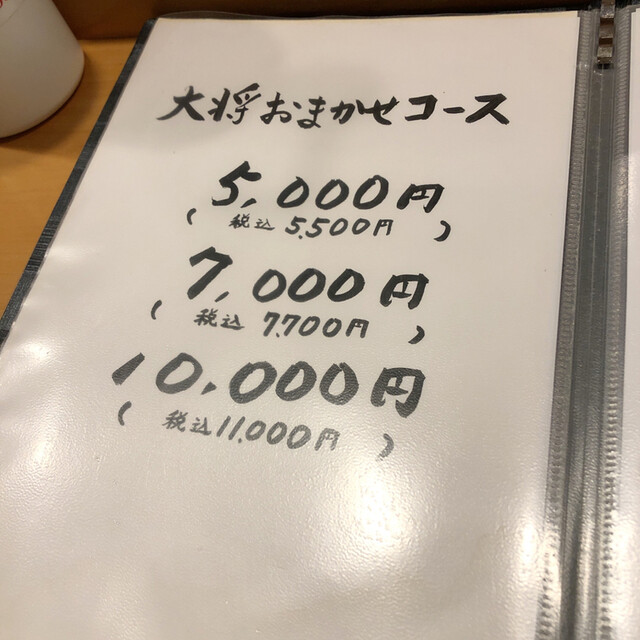 大将おまかせコース
5,000円
(税込 5,500円)
7,000円
(税込 7,700円)
10,000円
(税込 11,000円)